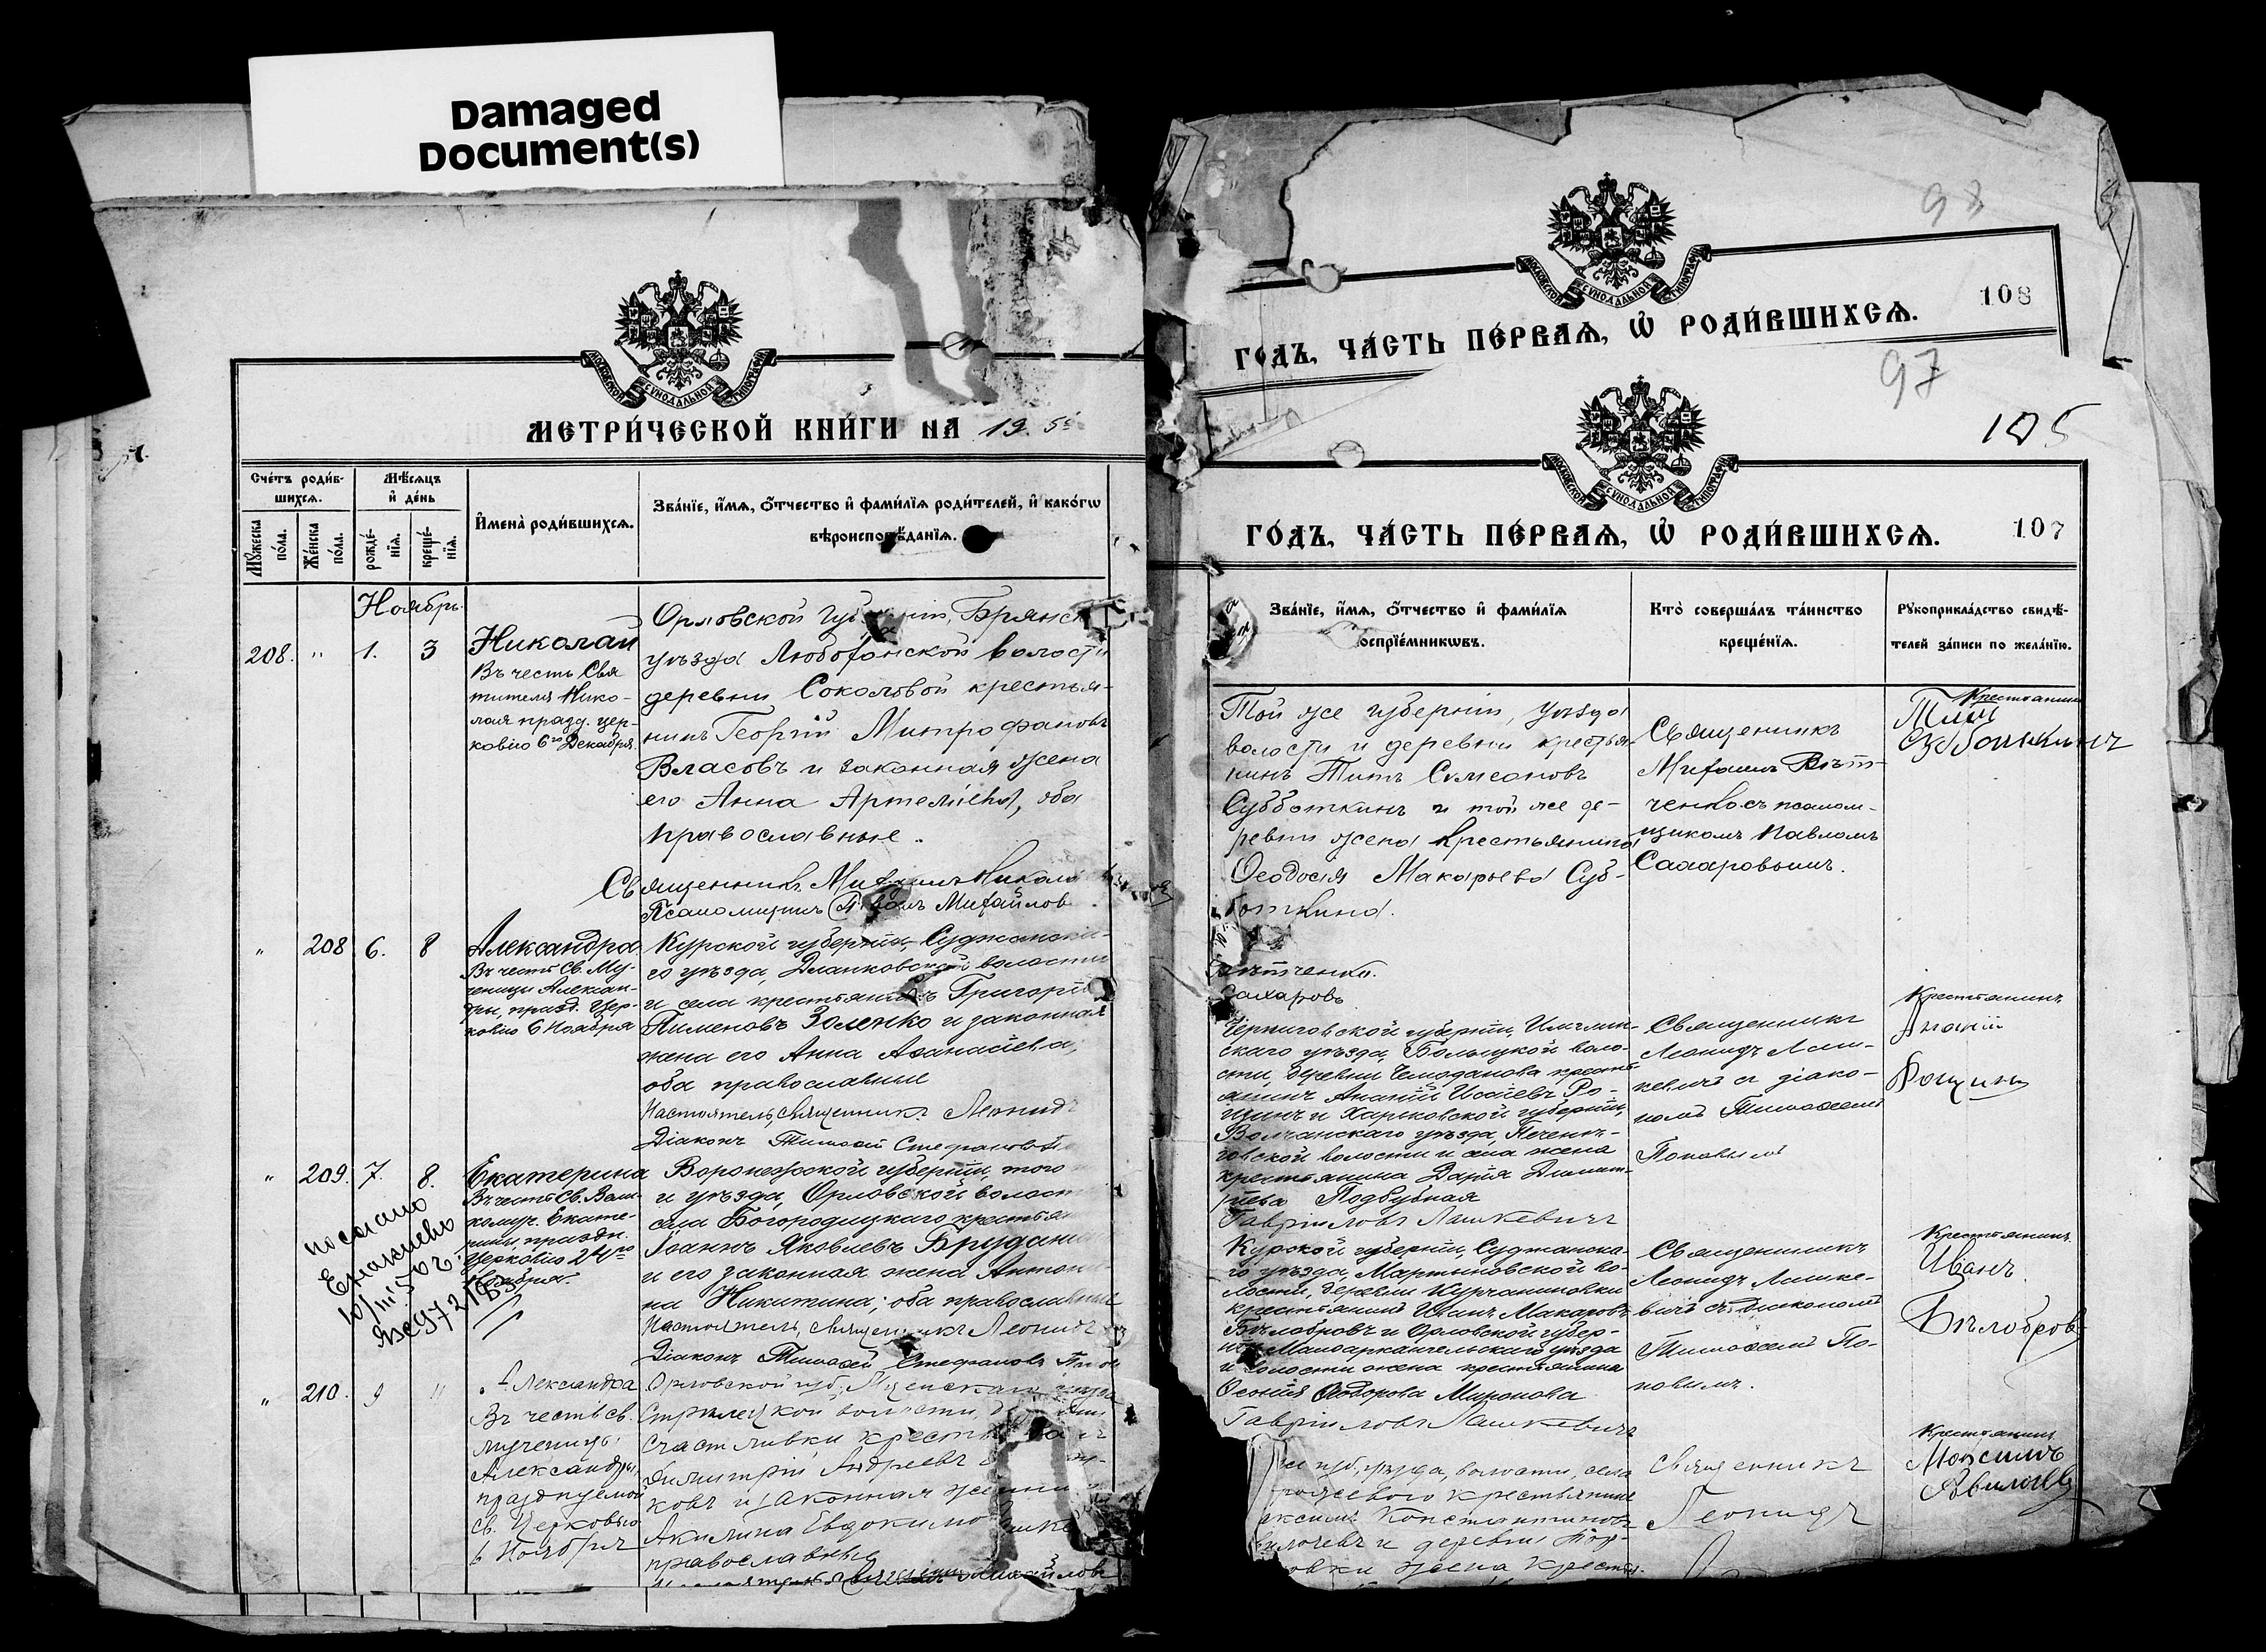 Damaged
Document(s)
МОСКОВСКОЙ СУНОДАЛЬНОЙ ТИПОГРАФІИ
МЕТРИ́ЧЕСКОЙ КНИ́ГИ НА 19 5
Сче́тъ роди́в-
шихсѧ.
Мѣ́сѧцъ
и҆ де́нь
Мꙋжеска
по́ла.
Же́нска
по́ла.
рожде́-
нїѧ.
креще́-
нїѧ.
И҆мена̀ роди́вшихсѧ.
Зва́нїе, и҆́мѧ, ѻ҆́тчество и҆ фами́лїѧ роди́телей, и҆ како́гѡ
вѣроисповѣ́данїѧ.
Ноябрь.
208. " 1. 3
Николай
Въ честь Свя
тителя Нико-
лая празд. цер-
ковію 6го Декабря
Орловской Брянск
уѣзда Любохонской волости
деревни Соколовой крестья-
нинъ Георгій Митрофановъ
Власовъ и законная жена
его Анна Артеміева, оба
православные.
Священникъ Михаилъ
Псаломщикъ Михайлов
" 208 6. 8
Александра
Въ честь Св. Му-
ченицы Алексан-
дры, празд. Цер-
ковію 6 Ноября
Курской губерніи, Суджанска-
го уѣзда, волости
и села крестьянинъ Григорій
Пименовъ Золенко и законная
жена его Анна Аѳанасіева,
оба православные
Настоятель, священникъ Леонидъ
Діаконъ Тимоѳей Стефановъ
" 209. 7. 8.
Екатерина
Въ честь Св. Вели-
комуч. Екате-
рины, праздн.
Церковію 24го
Ноября.
послано
Енакіево
10/III 50 г.
Воронежской губерніи, того
и уѣзда, Орловской волост
села Богородицкаго крестьян
Іоаннъ Яковлевъ
и его законная жена Антони
на Никитина; оба православные
Настоятель, священникъ Леонидъ
Діаконъ Тимоѳей Стефановъ
" 210. 9 "
Александра
Въ честь св.
мученицы
Александры,
празднуемой
св. Церковью
6 Ноября
Орловской губ., Мценскаго уѣзда
Стрѣлецкой волости,
Счастливки
Димитрій Андреевъ
ковъ и законная жена
Акилина Евдокимо
православные
98
МОСКОВСКОЙ СУНОДАЛЬНОЙ ТИПОГРАФІИ
ГО́ДЪ, ЧА́СТЬ ПЕ́РВАѦ, Ѡ҆ РОДИ́ВШИХСѦ. 108
97
105
МОСКОВСКОЙ СУНОДАЛЬНОЙ ТИПОГРАФІИ
ГО́ДЪ, ЧА́СТЬ ПЕ́РВАѦ, Ѡ҆ РОДИ́ВШИХСѦ. 107
Зва́нїе, и҆́мѧ, ѻ҆́тчество и҆ фами́лїѧ
оспрїе́мникѡвъ.
Кто̀ соверша́лъ та́инство
креще́нїѧ.
Рꙋкоприкла́дство свидѣ́-
телей за́писи по жела́нїю.
Той же губерніи, уѣзда
волости и деревни крестья-
нинъ Титъ Симеоновъ
Субботкинъ и той же де-
ревни жена крестьянина
Ѳеодосія Макарьева Суб-
боткина.
Вѣтченко.
Сахаровъ
Священникъ
Михаилъ Вѣт-
ченко съ псалом-
щикомъ Павломъ
Сахаровымъ.
Крестьянинъ
Титъ
Субботкинъ
Черниговской губерніи,
скаго уѣзда, воло-
сти, деревни Чемоданова кресть-
янинъ Ананій Исаіевъ Ро-
щинъ и Харьковской губерніи,
Волчанскаго уѣзда, Печенѣ-
говской волости и села жена
крестьянина Дарія Димит-
ріева Поддубная
Гавріиловъ Лашкевичъ
Священникъ
Леонидъ Лаш-
кевичъ съ діако-
номъ Тимоѳеемъ
Поповымъ
Крестьянинъ
Ананій
Рощинъ
Курской губерніи, Суджанска-
го уѣзда, Мартыновской во-
лости, деревни
крестьянинъ Иванъ Макаровъ
Бѣлобровъ и Орловской губер-
ніи Малоархангельскаго уѣзда
и волости жена крестьянина
Ѳеодорова Миронова
Гавріиловъ Лашкевичъ
Священникъ
Леонидъ Лашке-
вичъ съ діакономъ
Тимоѳеемъ По-
повымъ.
Крестьянинъ
Иванъ
Бѣлобровъ
губ., уѣзда, волости, села
крестьянинъ
Константиновъ
и деревни
жена
Священникъ
Леонидъ
Крестьянинъ
Максимъ